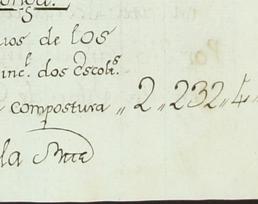 uos de los
inc.l dos Escobs.
compostura ,, 2 ,, 232 ,, 4 ,,
la